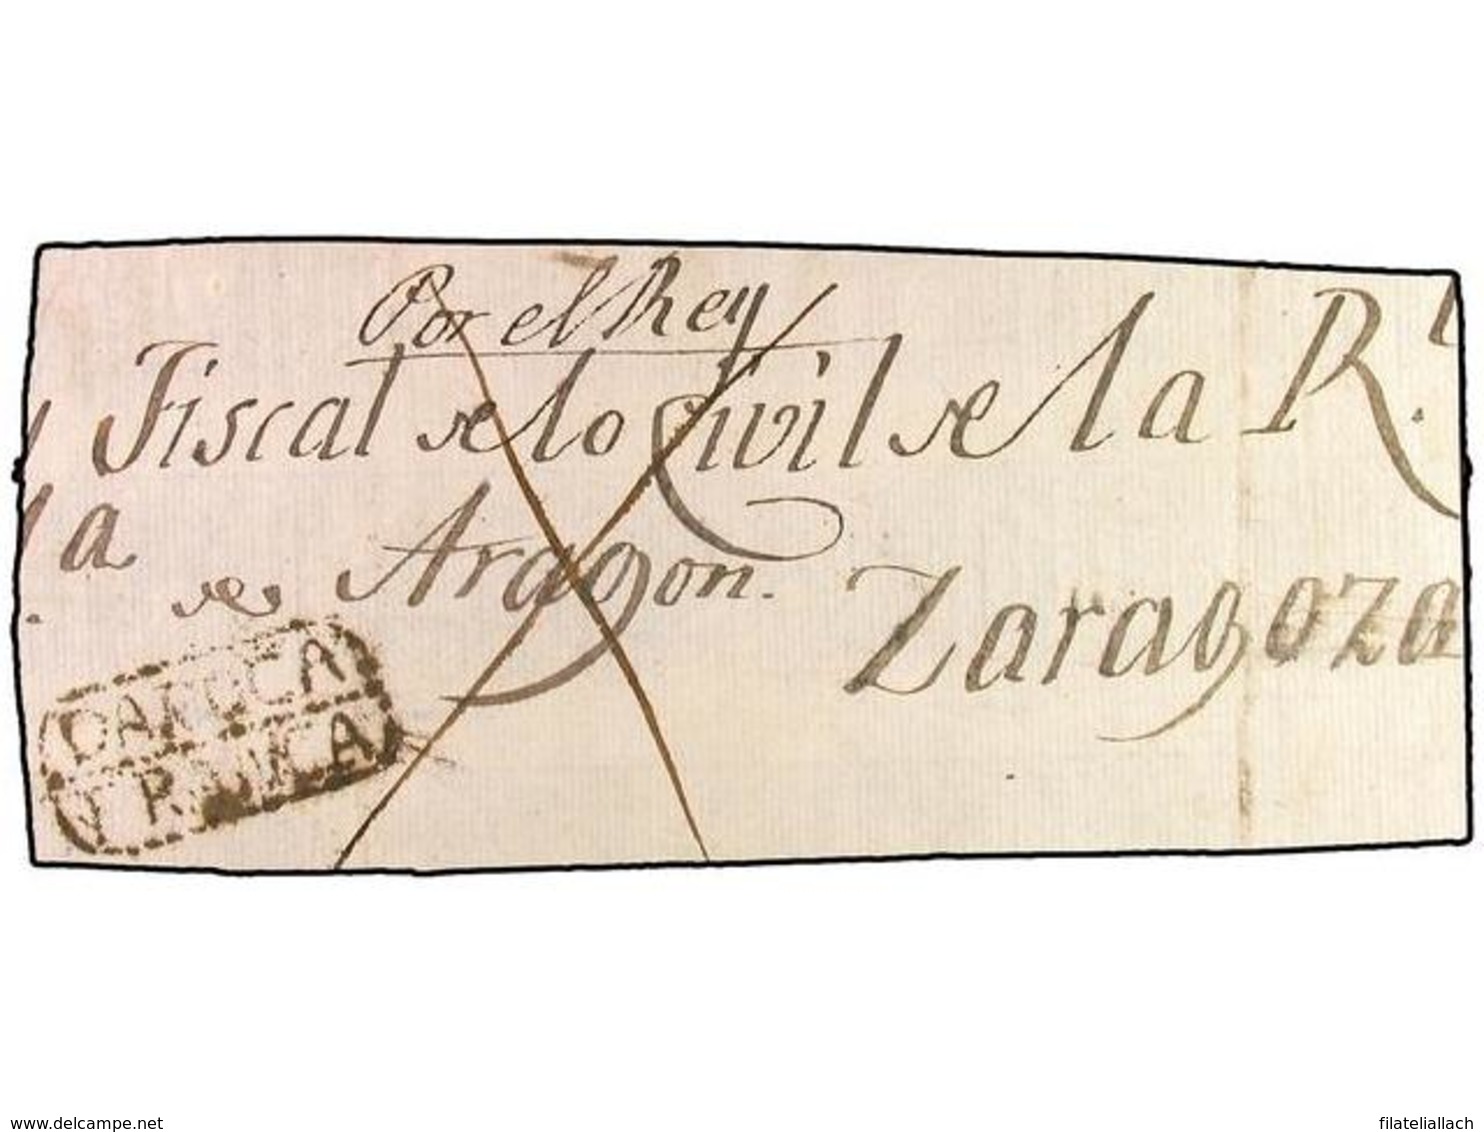 Por el Rey
Fiscal de lo Civil de la R.l
a
de Aragon.
Zaragoza
DAROCA
FRANCA
www.delcampe.net
filateliallach